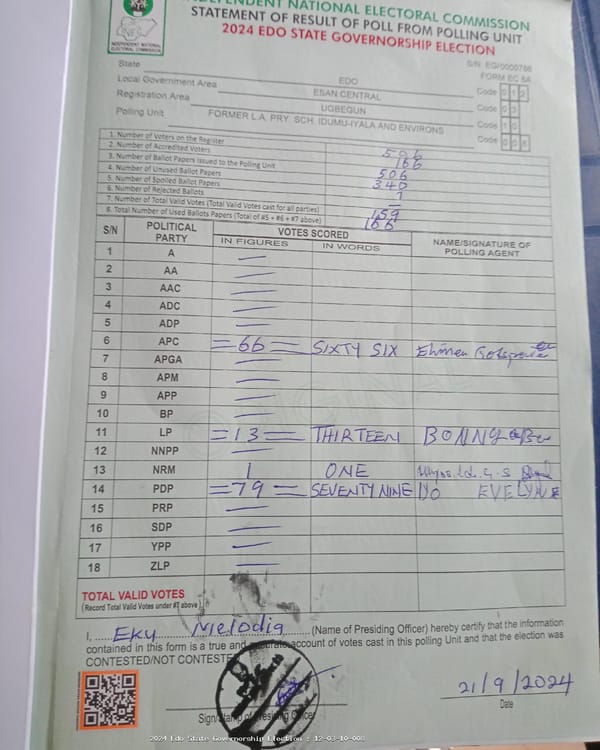 INDEPENDENT NATIONAL ELECTORAL COMMISSION
STATEMENT OF RESULT OF POLL FROM POLLING UNIT
2024 EDO STATE GOVERNORSHIP ELECTION
INDEPENDENT NATIONAL ELECTORAL COMMISSION
S/N: EG/0000768
FORM EC 8A
State EDO Code 0 1 2
Local Government Area ESAN CENTRAL Code 0 3
Registration Area UGBEGUN Code 1 0
Polling Unit FORMER L.A. PRY. SCH. IDUMU-IYALA AND ENVIRONS Code 0 0 8
1. Number of Voters on the Register 506
2. Number of Accredited Voters 166
3. Number of Ballot Papers Issued to the Polling Unit 506
4. Number of Unused Ballot Papers 340
5. Number of Spoiled Ballot Papers 7
6. Number of Rejected Ballots —
7. Number of Total Valid Votes (Total Valid Votes cast for all parties) 159
8. Total Number of Used Ballots Papers (Total of #5 + #6 + #7 above) 166
S/N POLITICAL PARTY VOTES SCORED NAME/SIGNATURE OF POLLING AGENT
IN FIGURES IN WORDS
1 A —
2 AA —
3 AAC —
4 ADC —
5 ADP —
6 APC =66= SIXTY SIX Ehimen
7 APGA —
8 APM —
9 APP —
10 BP —
11 LP =13= THIRTEEN BONNY
12 NNPP —
13 NRM 1 ONE
14 PDP =79= SEVENTY NINE EVELYNE
15 PRP —
16 SDP —
17 YPP —
18 ZLP —
TOTAL VALID VOTES
(Record Total Valid Votes under #7 above)
I, ..... EKY Melodig ..... (Name of Presiding Officer) hereby certify that the information
contained in this form is a true and accurate account of votes cast in this polling Unit and that the election was
CONTESTED/NOT CONTESTED
21/9/2024
Sign/Stamp of Presiding Officer
Date
2024 Edo State Governorship Election : 12-03-10-008